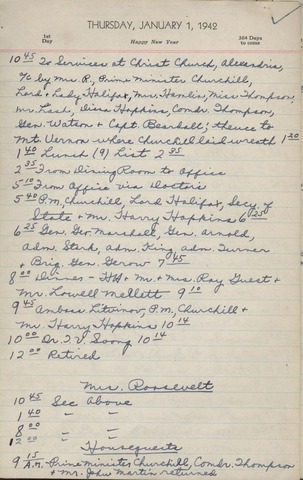 THURSDAY, JANUARY 1, 1942
1st Day
Happy New Year
364 Days to come
10 45 To Services at Christ Church, Alexandria,
% by Mrs. R, Prime Minister Churchill,
Lord & Lady Halifax, Mrs. Hamlin, Miss Thompson,
Mr. Lash, Diana Hopkins, Comdr. Thompson,
Gen. Watson & Capt. Beardall; thence to
Mt. Vernon where Churchill laid wreath 1 20
1 40 Lunch (9) List 2 35
2 35 From Dining Room to Office
5 10 From Office via Doctors
5 40 P.M. Churchill, Lord Halifax, Secy. of
State & Mr. Harry Hopkins 6 25
6 25 Gen. Geo Marshall, Gen. Arnold,
Adm. Stark, Adm. King, Adm. Turner
& Brig. Gen. Gerow 7 45
8 00 Dinner - HH & Mr. & Mrs. Ray Guest &
Mr. Lowell Mellett 9 10
9 45 Ambass. Litvinov, P.M. Churchill &
Mr. Harry Hopkins 10 14
10 00 Dr. T.V. Soong 10 14
12 00 Retired
Mrs. Roosevelt
10 45 See Above
1 40 " "
8 00 " "
12 00 " "
Houseguests
9 15 A.M. - Prime Minister Churchill, Comdr. Thompson
& Mr. John Martin returned